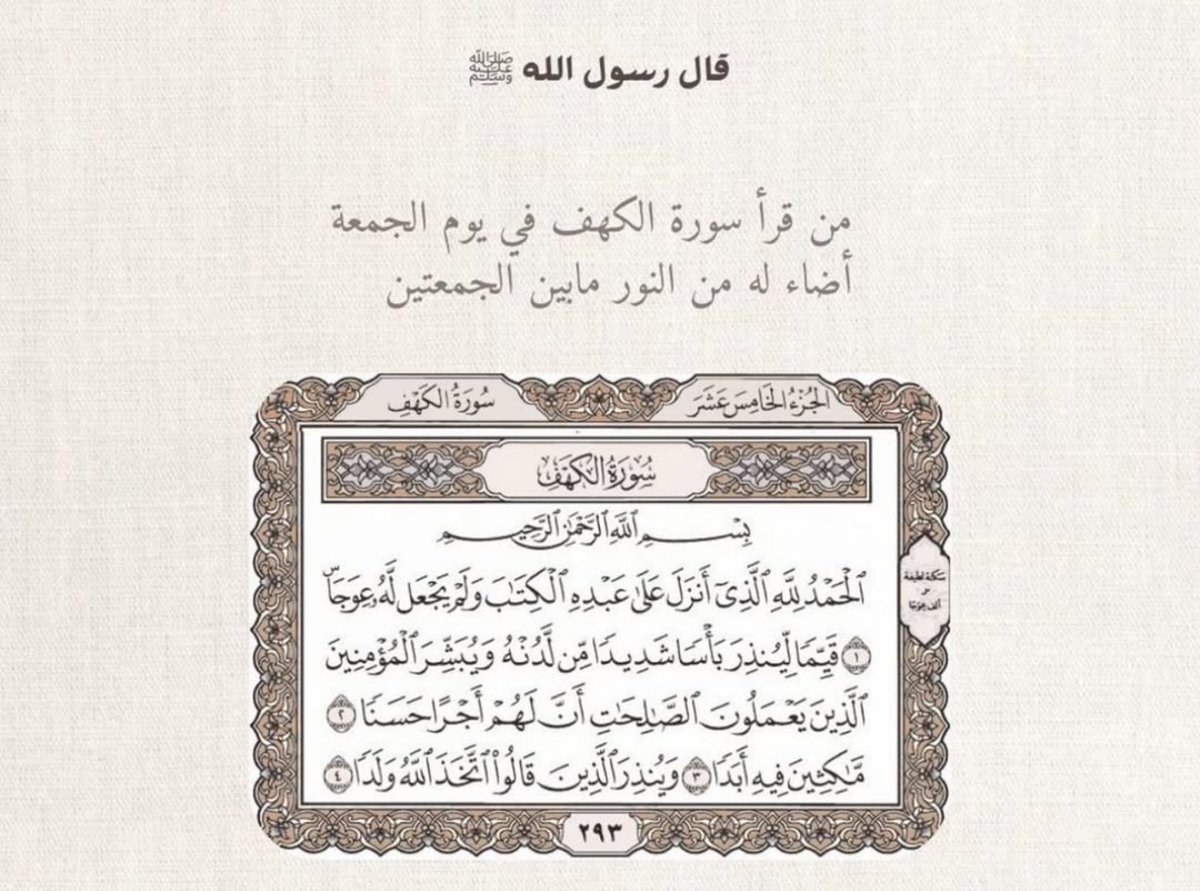 قال رسول الله ﷺ
من قرأ سورة الكهف في يوم الجمعة
أضاء له من النور مابين الجمعتين
الجُزْءُ الخَامِسَ عَشَرَ
سُورَةُ الكَهْفِ
سُورَةُ الكَهْفِ
بِسْمِ ٱللَّهِ ٱلرَّحْمَٰنِ ٱلرَّحِيمِ
ٱلْحَمْدُ لِلَّهِ ٱلَّذِىٓ أَنزَلَ عَلَىٰ عَبْدِهِ ٱلْكِتَٰبَ وَلَمْ يَجْعَل لَّهُۥ عِوَجَاۜ
١ قَيِّمًا لِّيُنذِرَ بَأْسًا شَدِيدًا مِّن لَّدُنْهُ وَيُبَشِّرَ ٱلْمُؤْمِنِينَ
ٱلَّذِينَ يَعْمَلُونَ ٱلصَّٰلِحَٰتِ أَنَّ لَهُمْ أَجْرًا حَسَنًا ٢
مَّٰكِثِينَ فِيهِ أَبَدًا ٣ وَيُنذِرَ ٱلَّذِينَ قَالُوا۟ ٱتَّخَذَ ٱللَّهُ وَلَدًا ٤
سكتة لطيفة
على
ألف عِوَجَا
٢٩٣